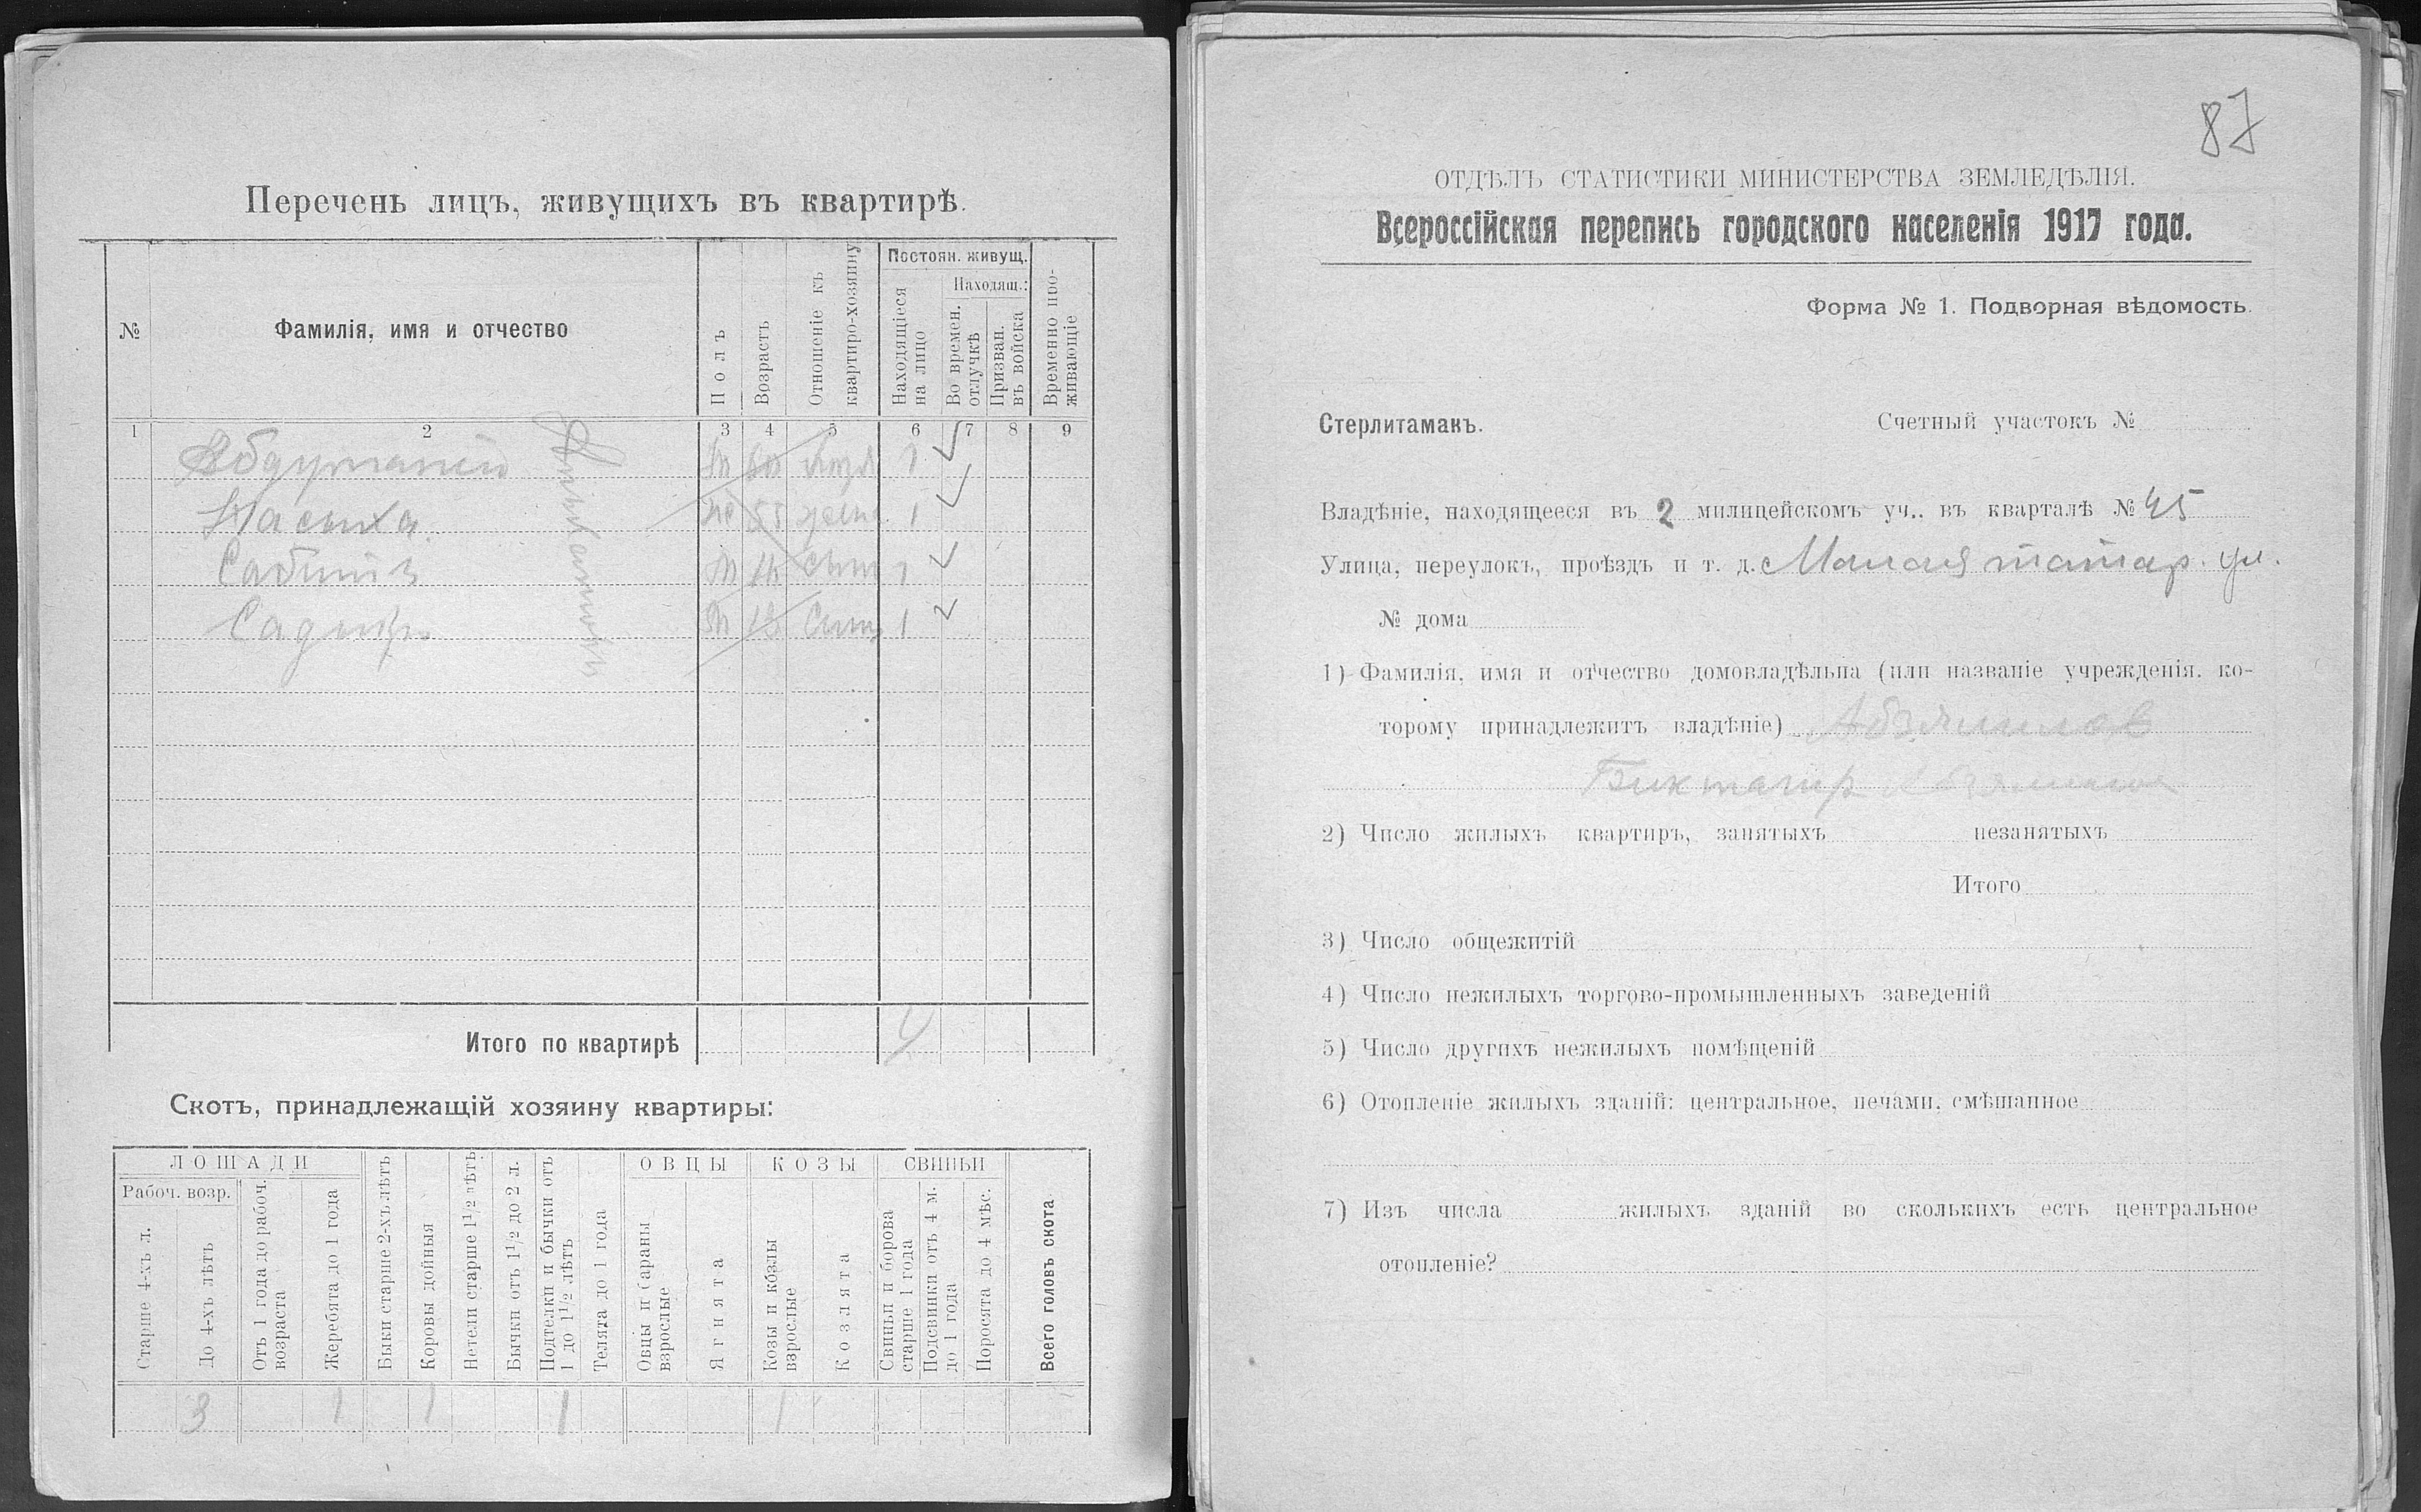 Перечень лицъ, живущихъ въ квартирѣ.
№
Фамилія, имя и отчество
Полъ
Возрастъ
Отношеніе къ квартиро-хозяину
Постоян. живущ.
Находящіеся на лицо
Находящ.:
Во времен. отлучкѣ
Призван. въ войска
Временно проживающіе
1 2 3 4 5 6 7 8 9
м 1
Насыха 55 жена 1
Сабитъ м сынъ 1
Садыкъ м 13 сынъ 1
Итого по квартирѣ 4
Скотъ, принадлежащій хозяину квартиры:
ЛОШАДИ
Рабоч. возр.
Старше 4-хъ л.
До 4-хъ лѣтъ
Отъ 1 года до рабоч. возраста
Жеребята до 1 года
Быки старше 2-хъ лѣтъ
Коровы дойныя
Нетели старше 1 1/2 лѣтъ
Бычки отъ 1 1/2 до 2 л.
Подтелки и бычки отъ 1 до 1 1/2 лѣтъ
Телята до 1 года
ОВЦЫ
Овцы и бараны взрослые
Ягнята
КОЗЫ
Козы и козлы взрослые
Козлята
СВИНЬИ
Свиньи и борова старше 1 года
Подсвинки отъ 4 м. до 1 года
Поросята до 4 мѣс.
Всего головъ скота
3 1 1 1 1
87
ОТДѢЛЪ СТАТИСТИКИ МИНИСТЕРСТВА ЗЕМЛЕДѢЛІЯ.
Всероссійская перепись городского населенія 1917 года.
Форма № 1. Подворная вѣдомость.
Стерлитамакъ.
Счетный участокъ №
Владѣніе, находящееся въ 2 милицейскомъ уч., въ кварталѣ № 45
Улица, переулокъ, проѣздъ и т. д. Малая татар. ул.
№ дома
1) Фамилія, имя и отчество домовладѣльца (или названіе учрежденія, ко-
торому принадлежитъ владѣніе) Абзялилов
Биктагир
2) Число жилыхъ квартиръ, занятыхъ незанятыхъ
Итого
3) Число общежитій
4) Число нежилыхъ торгово-промышленныхъ заведеній
5) Число другихъ нежилыхъ помѣщеній
6) Отопленіе жилыхъ зданій: центральное, печами, смѣшанное
7) Изъ числа жилыхъ зданій во сколькихъ есть центральное
отопленіе?